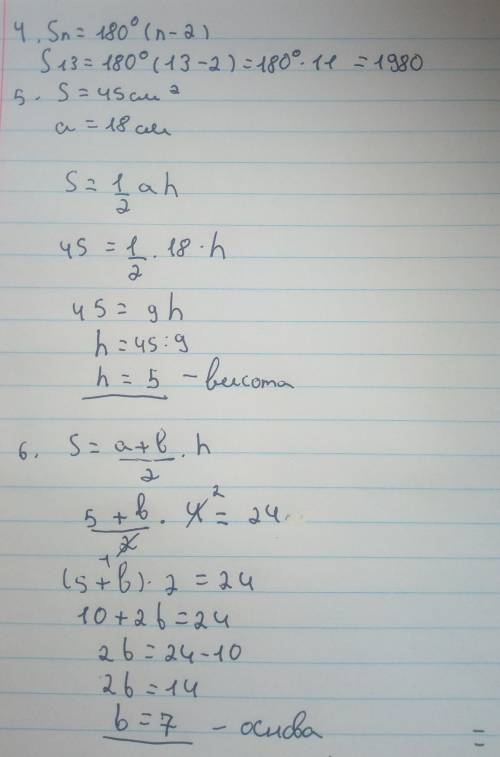 4. Sn = 180° (n-2)
S13 = 180° (13-2) = 180° · 11 = 1980
5. S = 45 см²
a = 18 см
S = 1/2 ah
45 = 1/2 · 18 · h
45 = 9h
h = 45 : 9
h = 5 - висота
6. S = a+b/2 · h
5+b/2 · 4 = 24
1 2
(5+b) · 2 = 24
10 + 2b = 24
2b = 24 - 10
2b = 14
b = 7 - основа
=